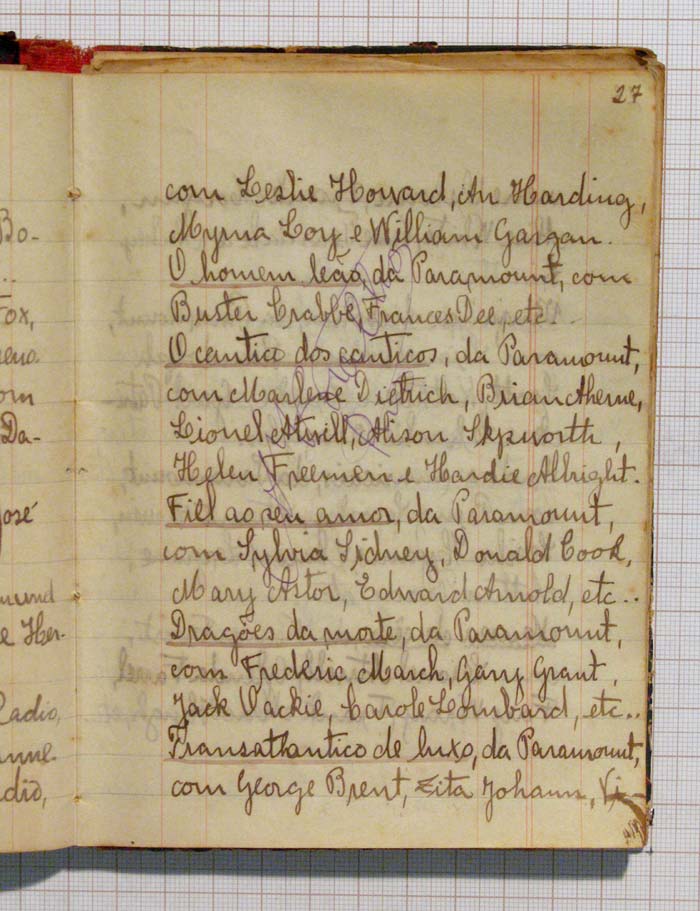 27
com Leslie Howard, An Harding,
Myrna Loy e William Gargan.
O homem leão, da Paramount, com
Buster Crabbe, Frances Dee, etc..
O cantico dos canticos, da Paramount,
com Marlene Dietrich, Brian Aherne,
Lionel Atwill, Alison Skpworth,
Helen Freemen e Hardie Albright.
Fiel ao seu amor, da Paramount,
com Sylvia Sidney, Donald Cook,
Mary Astor, Edward Arnold, etc..
Dragões da morte, da Paramount,
com Frederic March, Gary Grant,
Jack Oackie, Carole Lombard, etc..
Transatlantico de luxo, da Paramount,
com George Brent, Zita Johann, Vi-
Bo-
Fox,
om
Da-
José
mund
e Her-
Radio,
adio,